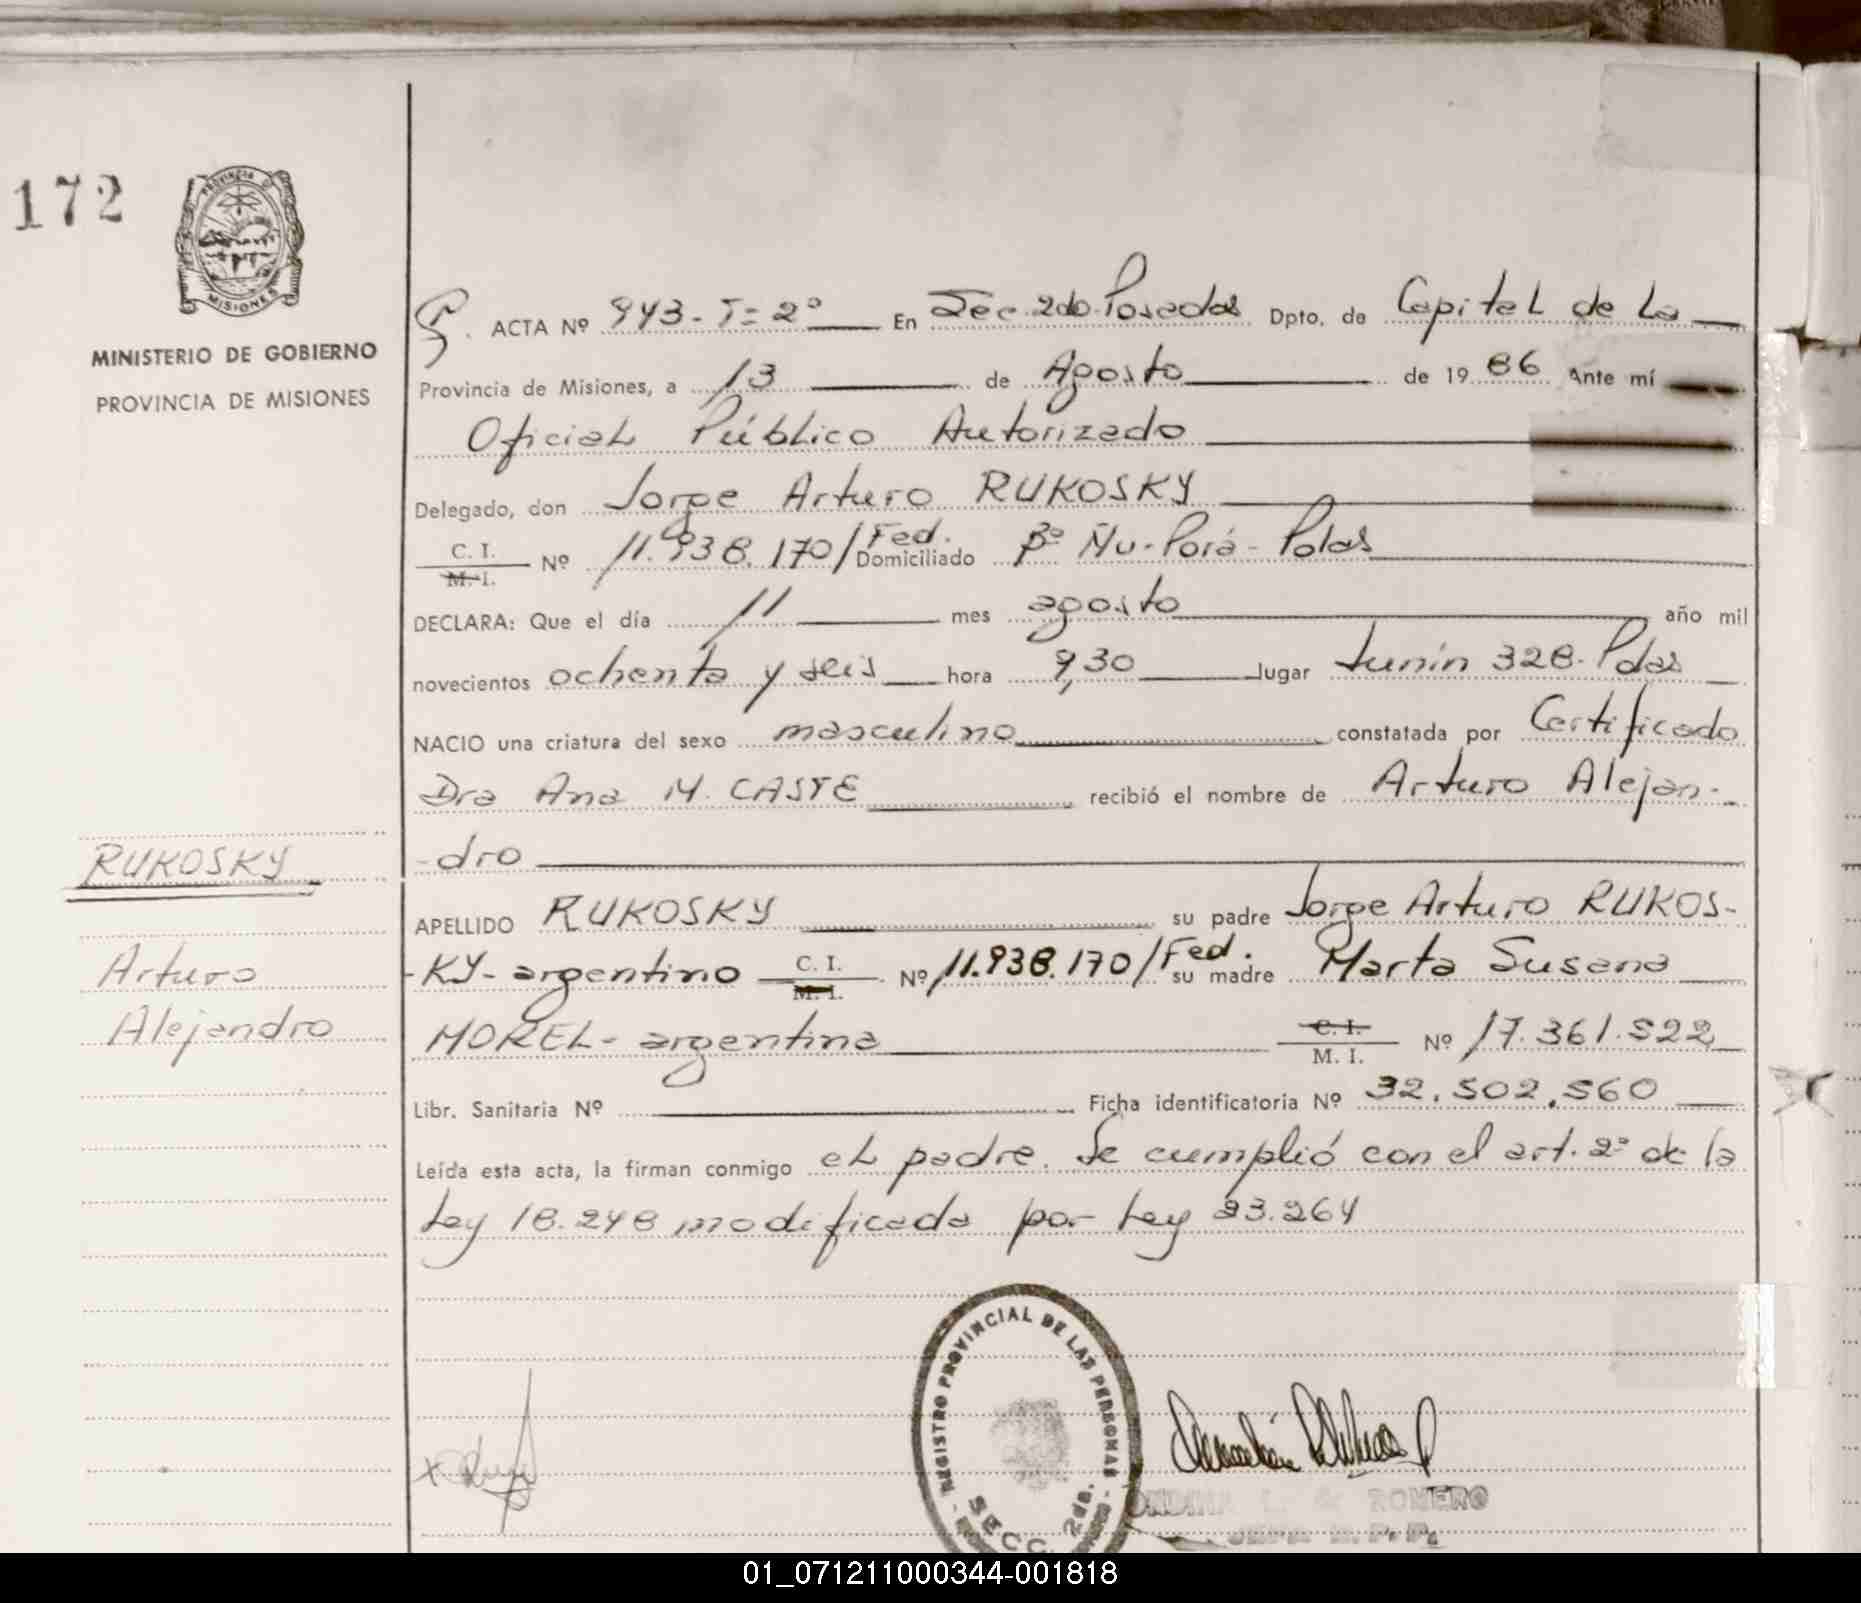 172
PROVINCIA DE
MISIONES
MINISTERIO DE GOBIERNO
PROVINCIA DE MISIONES
RUKOSKY
Arturo
Alejandro
ACTA Nº 943 - T= 2º En Sec. 2do. Posadas Dpto. de Capital de La
Provincia de Misiones, a 13 de Agosto de 1986 Ante mí
Oficial Público Autorizado
Delegado, don Jorge Arturo RUKOSKY
C. I. M. I. Nº 11.938.170/Fed. Domiciliado Bº Ñu-Porá - Pdas
DECLARA: Que el día 11 mes agosto año mil
novecientos ochenta y seis hora 9,30 lugar Junín 328- Pdas
NACIO una criatura del sexo masculino constatada por Certificado
Dra Ana M. CASTE recibió el nombre de Arturo Alejan-
-dro
APELLIDO RUKOSKY su padre Jorge Arturo RUKOS-
-KY- argentino C. I. M. I. Nº 11.938.170/Fed. su madre Marta Susana
MOREL- argentina C. I. M. I. Nº 17.361.522
Libr. Sanitaria Nº Ficha identificatoria Nº 32.502.560
Leída esta acta, la firman conmigo el padre. Se cumplió con el art. 2º de la
Ley 18.248 modificada por Ley 23.264
REGISTRO PROVINCIAL DE LAS PERSONAS
SECC. 2da.
ROMERO
01_071211000344-001818